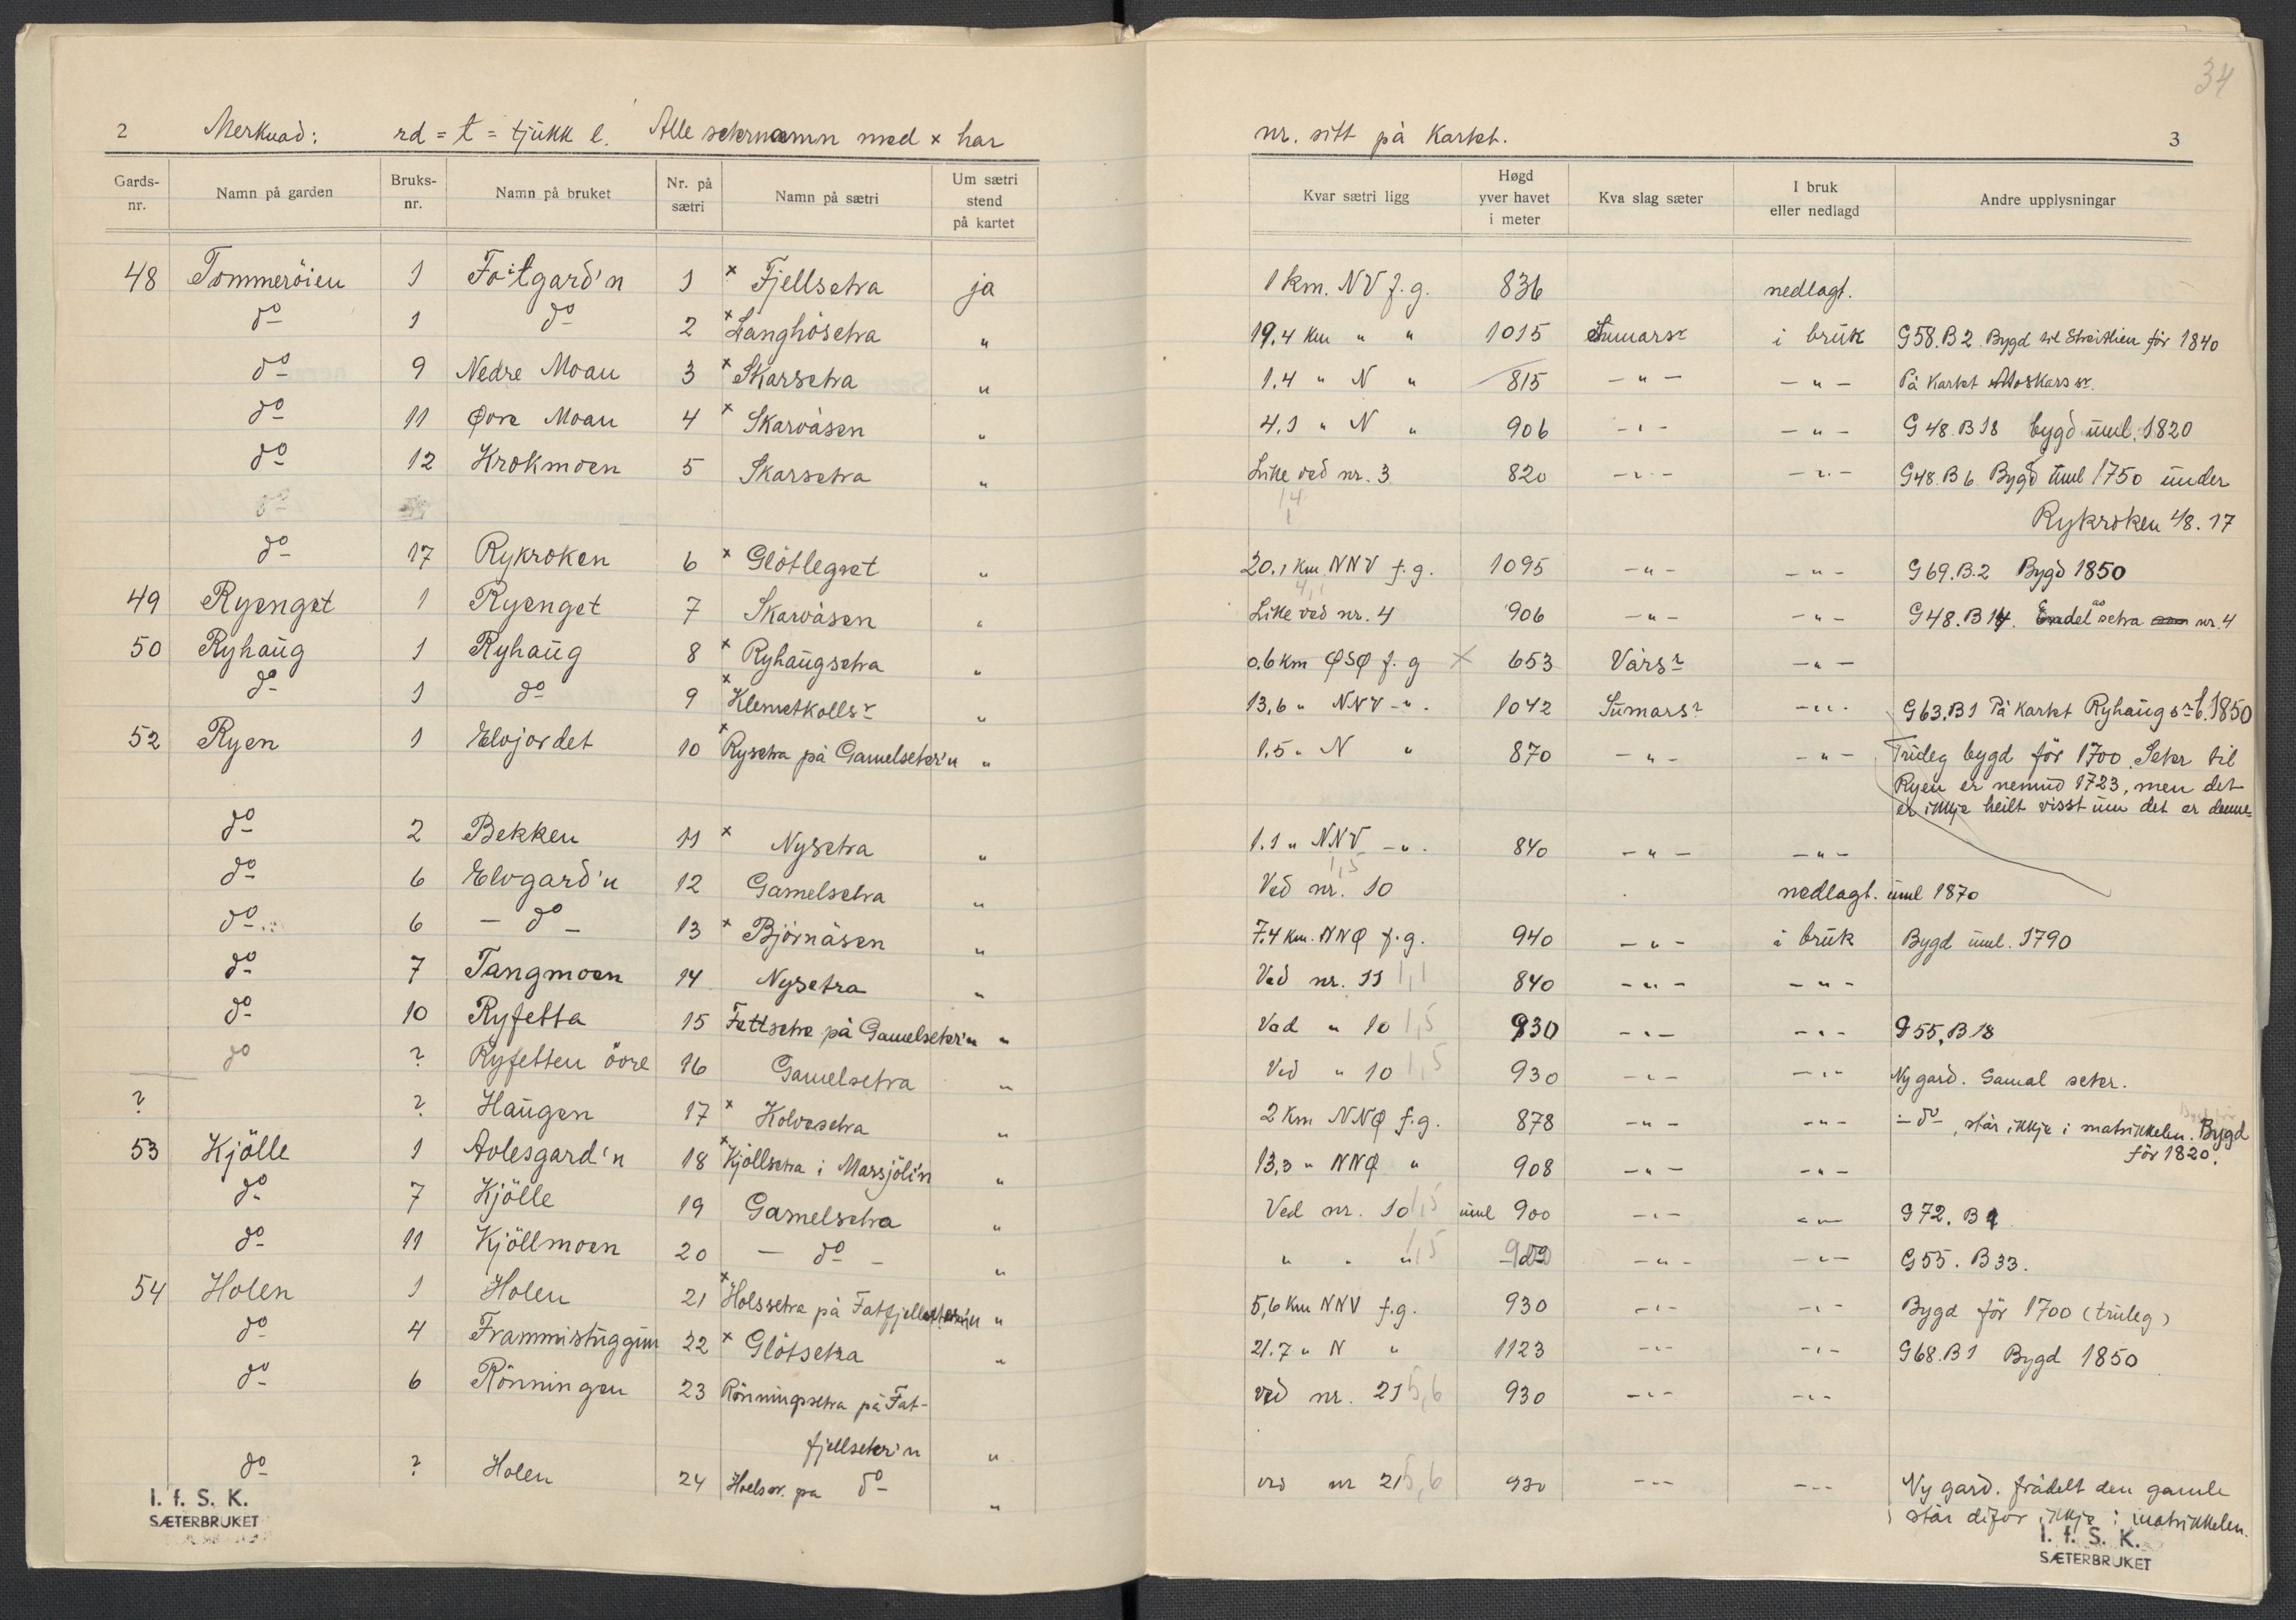 34
2 Merknad: rd = t = tjukk l. Alle seternamn med x har nr. sitt på kartet. 3
Gards-nr. Namn på garden Bruks-nr. Namn på bruket Nr. på sætri Namn på sætri Um sætri stend på kartet Kvar sætri ligg Høgd yver havet i meter Kva slag sæter I bruk eller nedlagd Andre upplysningar
48 Tommeröien 1 Fo:tgard'n 1 x Fjellsetra ja 1 km. NV f.g. 836 nedlagt.
do 1 do 2 x Langhösetra " 19.4 km " " 1015 Sumarsr i bruk G58.B2. Bygd för 1840
do 9 Nedre Moan 3 x Skarsetra " 1.4 " N " 815 - " - - " - På kartet Moskars sr.
do 11 Øvre Moan 4 x Skarvåsen " 4.1 " N " 906 - " - - " - G48.B18 bygd uml. 1820
do 12 Krokmoen 5 Skarsetra " Like ved nr. 3 820 - " - - " - G48.B6. Bygd uml 1750 under
do 1,4 Rykroken 48.17
do 17 Rykroken 6 x Glötlegret " 20.1 km NNV f.g. 1095 - " - - " - G69.B.2 Bygd 1850
49 Ryenget 1 Ryenget 7 Skarvåsen " Like ved nr. 4 4,1 906 - " - - " - G48.B14. Endel av setra nr. 4
50 Ryhaug 1 Ryhaug 8 x Ryhaugsetra " 0.6 km ØSØ f.g x 653 Vårsr - " -
do 1 do 9 x Klemetkollsr " 13,6 " NNV - " . 1042 Sumarsr - " - G63.B1 På kartet Ryhaugsr b. 1850
52 Ryen 1 Elvjordet 10 x Rysetra på Gamelseter'n " 1.5 " N " 870 - " - - " - Truleg bygd för 1700. Seter til
Ryen er nemnd 1723, men det
er ikkje heilt visst um det er denne
do 2 Bekken 11 x Nysetra " 1.1 " NNV - " . 840 - " - - " -
do 6 Elvgard'n 12 Gamelsetra " Ved nr. 10 1,5 nedlagt. uml 1870
do 6 - do - 13 x Björnåsen " 7.4 km. NNØ f.g. 940 - " - i bruk Bygd uml. 1790
do 7 Tangmoen 14 Nysetra " Ved nr. 11 1,1 840 - " - - " -
do 10 Ryfetta 15 Fettsetra på Gamelseter'n " Ved " 10 1,5 930 - " - - " - G55.B18
do ? Ryfetten övre 16 Gamelsetra " Ved " 10 1,5 930 - " - - " - Ny gard. Gamal seter.
? ? Haugen 17 x Kolvesetra " 2 km NNØ f.g. 878 - " - - " - - do -, står ikkje i matrikkelen. Bygd
för 1820.
53 Kjölle 1 Avlesgard'n 18 x Kjöllsetra i Marsjöli'n " 13,3 " NNØ " 908 - " - - " -
do 7 Kjölle 19 Gamelsetra " Ved nr. 10 1,5 uml 900 - " - - " - G72. B1
do 11 Kjöllmoen 20 - do - " " " " 1,5 900 - " - - " - G55. B33.
54 Holen 1 Holen 21 x Holssetra på Fatfjellseter'n " 5,6 km NNV f.g. 930 - " - - " - Bygd för 1700 (truleg)
do 4 Frammistuggun 22 x Glötsetra " 21.7 " N " 1123 - " - - " - G68.B1 Bygd 1850
do 6 Rönningen 23 Rönningsetra på Fat-
fjellseter'n " ved nr. 21 5,6 930 - " - - " -
do ? Holen 24 Holsr. på do " ved nr 21 5,6 930 - " - - " - Ny gard. frådelt den gamle
står difor ikkje i matrikkelen.
I. f. S. K.
SÆTERBRUKET
I. f. S. K.
SÆTERBRUKET